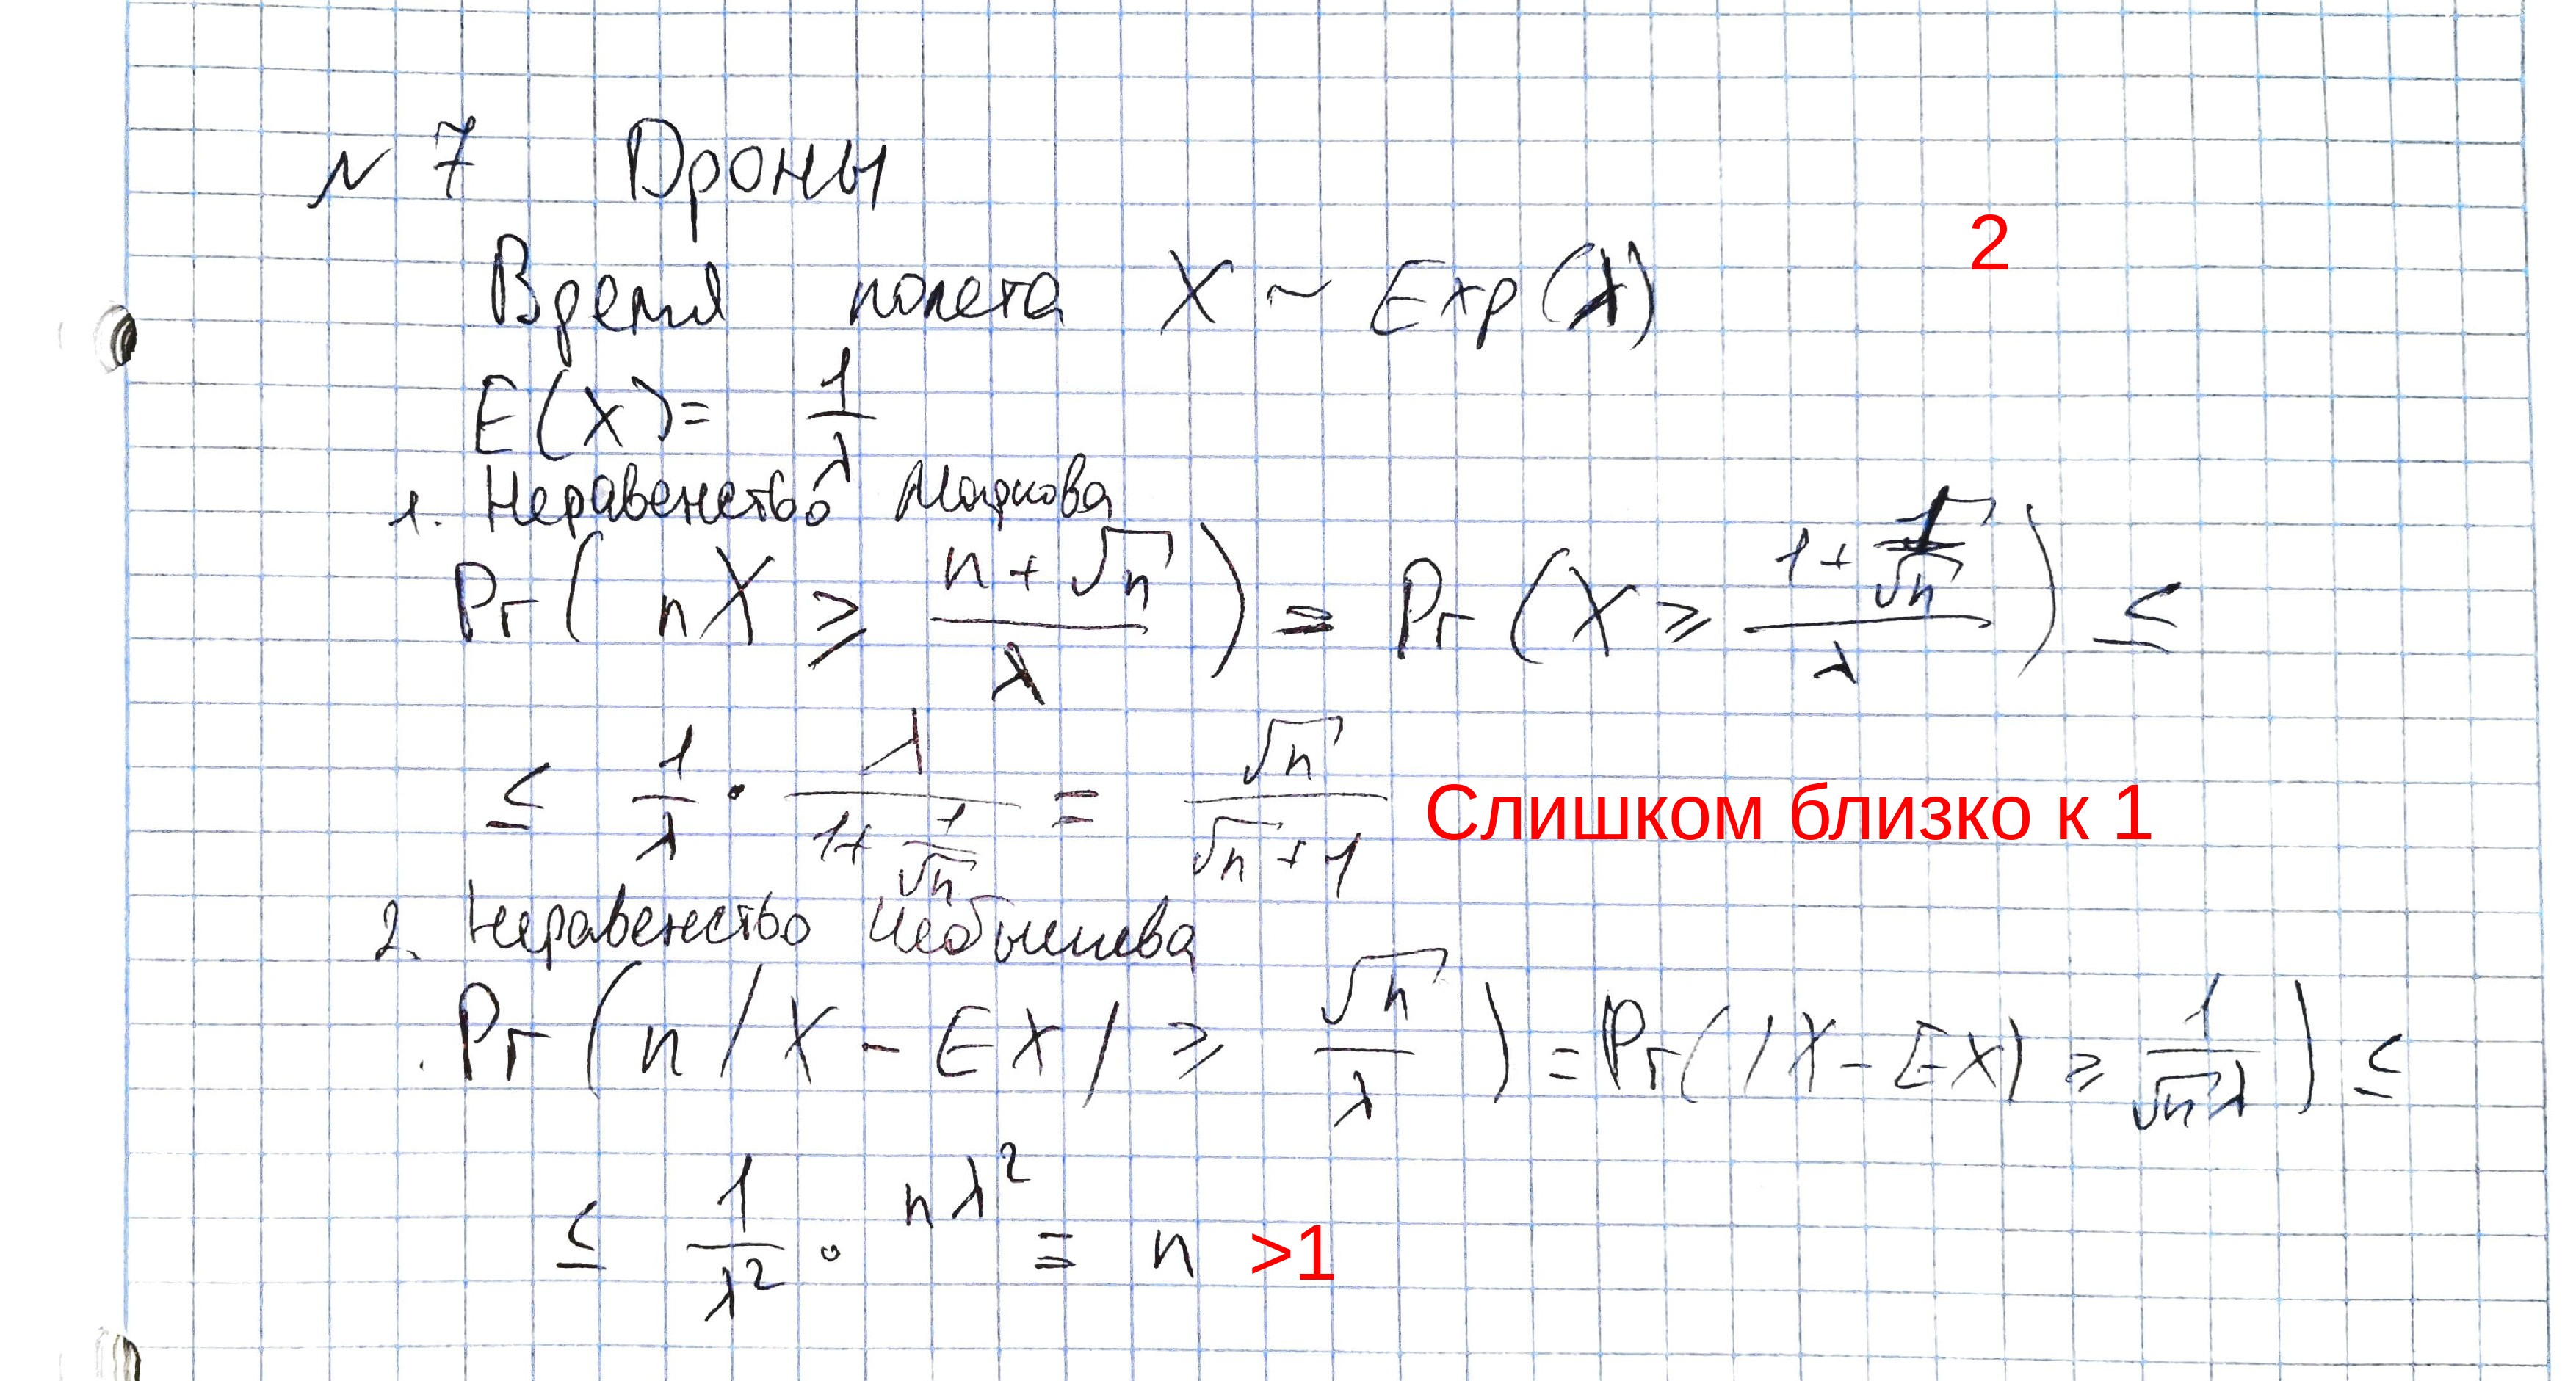 N 7 Дроны
2
Время полета X ~ Exp(λ)
E(X)= 1/λ
1. Неравенство Маркова
Pr( nX ≥ (n+√n)/λ ) = Pr(X ≥ (1+1/√n)/λ) ≤
≤ 1/λ · λ/(1+1/√n) = √n/(√n+1) Слишком близко к 1
2. Неравенство Чебышева
Pr(n|X-EX| ≥ √n/λ) = Pr(|X-EX| ≥ 1/(√nλ)) ≤
≤ 1/λ² · nλ² = n >1